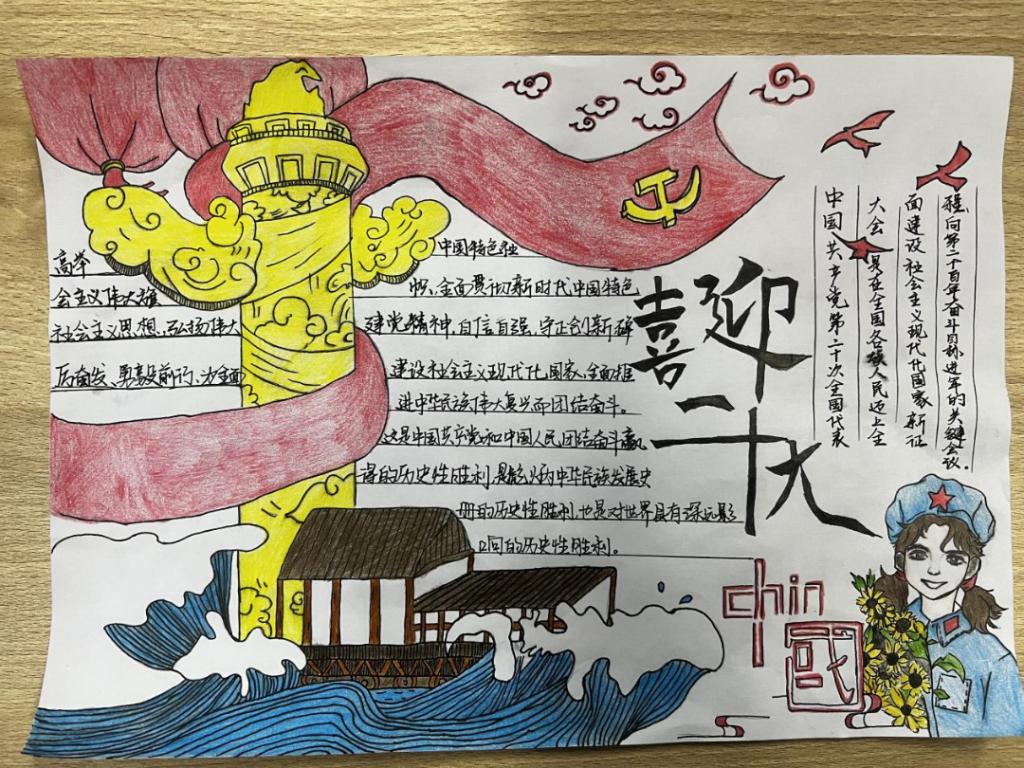 高举 中国特色社
会主义伟大旗 帜、全面贯彻新时代中国特色
社会主义思想、弘扬伟大 建党精神,自信自强、守正创新、踔
厉奋发、勇毅前行、为全面 建设社会主义现代化国家、全面推
进中华民族伟大复兴而团结奋斗。
这是中国共产党和中国人民团结奋斗赢
得的历史性胜利,是彪炳中华民族发展史
册的历史性胜利,也是对世界具有深远影
响的历史性胜利。
喜迎
二十大
中国共产党第二十次全国代表
大会 是在全国各族人民迈上全
面建设社会主义现代化国家新征
程、向第二个百年奋斗目标进军的关键会议。
chin
國